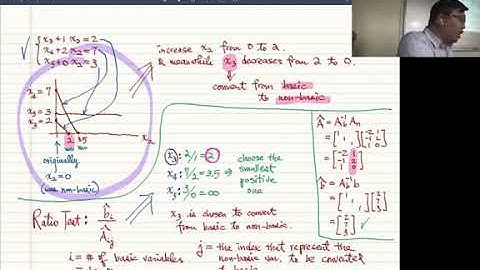 x₃+1 x₂ = 2
x₄+2 x₂ = 7
x₅+0 x₂ = 3
increase x₂ from 0 to 2.
& meanwhile x₃ decreases from 2 to 0.
convert from basic
to non-basic
x₄ = 7
x₅ = 3
x₃ = 2
2
3.5
x₂
originally
x₂ = 0
(was non-basic)
x₃: 2/1 = 2
x₄: 7/2 = 3.5 ⇒
x₅: 3/0 = ∞
choose the
smallest
positive
one
Â = A_b⁻¹ A_n
b̂ = A_b⁻¹ b
Ratio Test: b̂_i / Â_ij
x₃ is chosen to convert
from basic to non-basic.
i = # of basic variables
j = the index that represent the
non-basic var. to be converted
to basic